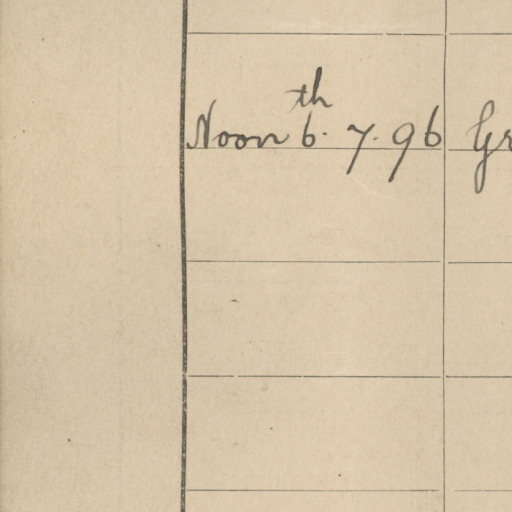 Noon 6th. 7. 96 Gr